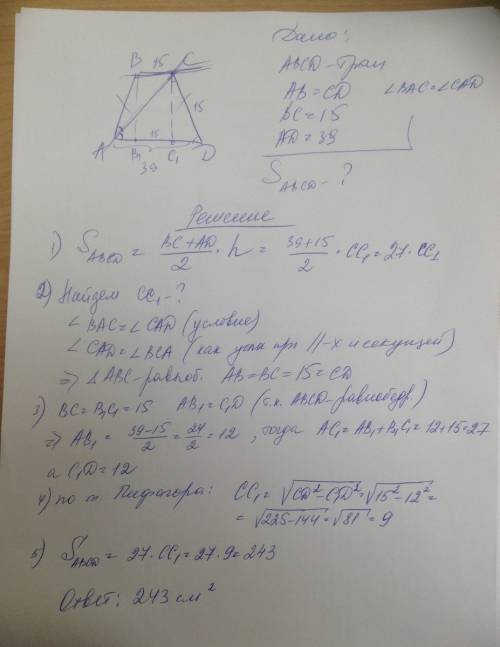 Дано:
ABCD-трап
AB=CD ∠BAC=∠CAD
BC=15
AD=39
S ABCD-?
B 15 C
15
A B₁ 15 C₁ D
39
Решение
1) S ABCD = (BC+AD)/2 · h = (39+15)/2 · CC₁ = 27·CC₁
2) Найдем CC₁-?
∠BAC=∠CAD (условие)
∠CAD=∠BCA (как углы при //-х и секущей)
⇒ △ABC-равноб. AB=BC=15=CD
3) BC=B₁C₁=15 AB₁=C₁D (т.к. ABCD-равнобедр.)
⇒ AB₁ = (39-15)/2 = 24/2 = 12, тогда AC₁=AB₁+B₁C₁=12+15=27
а C₁D=12
4) по т. Пифагора: CC₁=√(CD²-C₁D²)=√(15²-12²)=
=√(225-144)=√81=9
5) S ABCD = 27·CC₁=27·9=243
Ответ: 243 см²